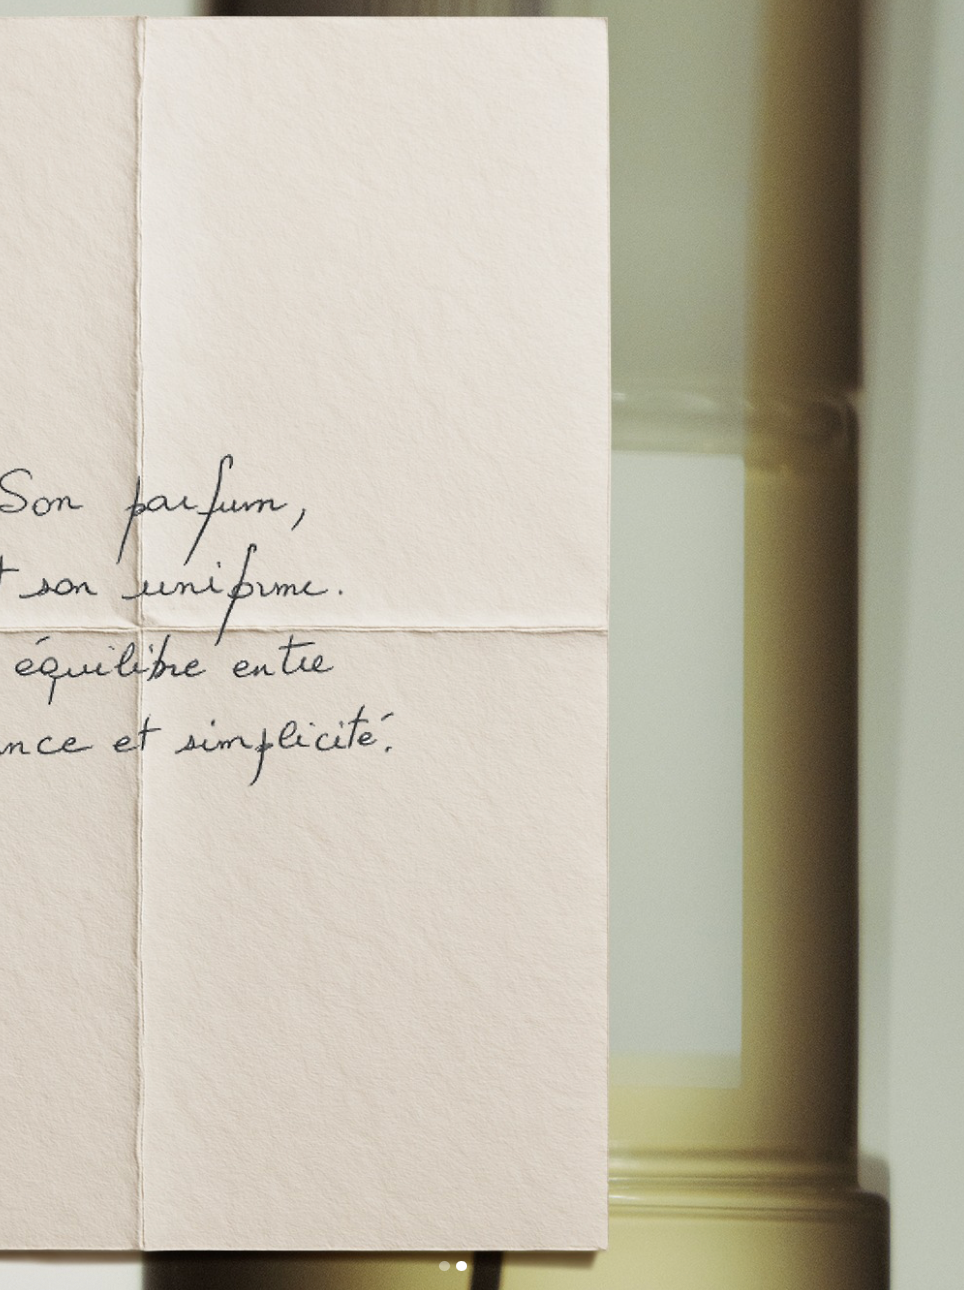 Son parfum,
t son uniforme.
équilibre entre
nce et simplicité.